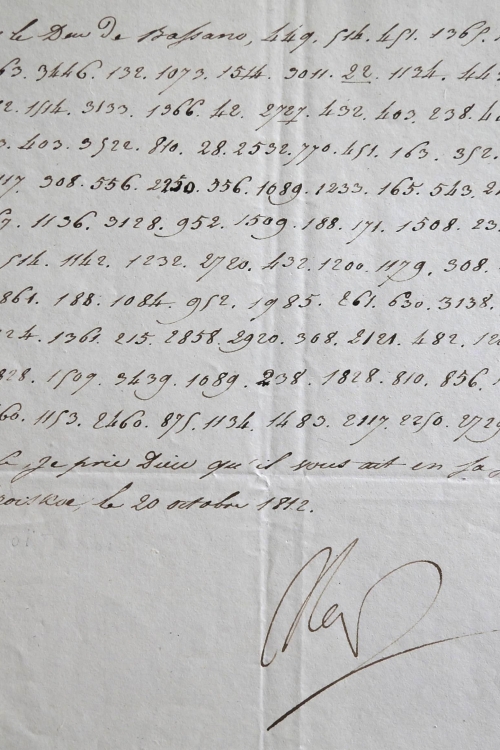 le Duc de Bassano, 449. 514. 451. 1365.
63. 3446. 132. 1073. 1544. 3011. 22. 1134.
1514. 3133. 1366. 42. 2727. 432. 403. 238.
403. 3522. 810. 28. 2532. 770. 451. 163. 352.
117. 308. 556. 2250. 356. 1089. 1233. 165. 543.
1136. 3128. 952. 1509. 188. 171. 1508.
514. 1142. 1232. 2720. 432. 1200. 1179. 308.
861. 188. 1084. 952. 1985. 261. 630. 3138.
24. 1361. 215. 2858. 2920. 308. 2121. 482.
828. 1509. 3439. 1089. 238. 1828. 810. 856.
60. 1153. 2460. 875. 1134. 1483. 2117. 2250. 2729
je prie Dieu qu'il vous ait en sa
le 20 octobre 1812.